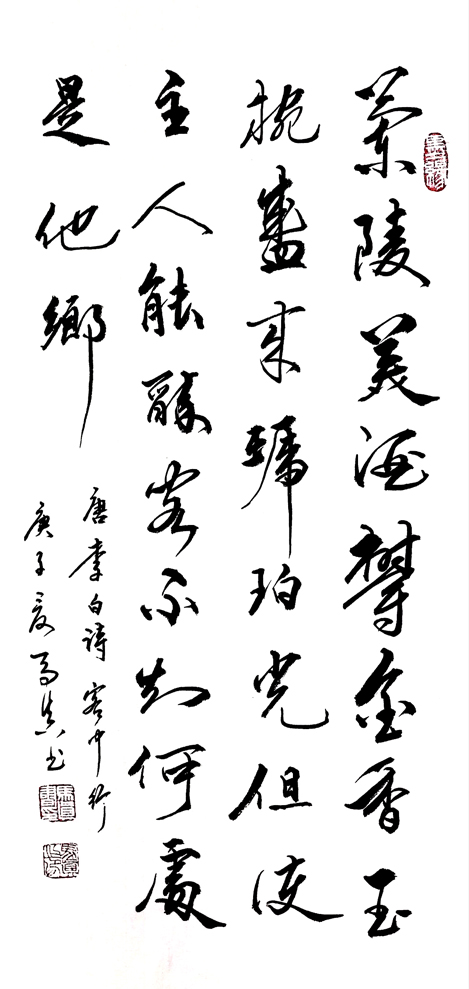 蘭陵美酒鬱金香玉
椀盛來琥珀光但使
主人能醉客不知何處
是他鄉
唐李白詩客中行
庚子夏馬书